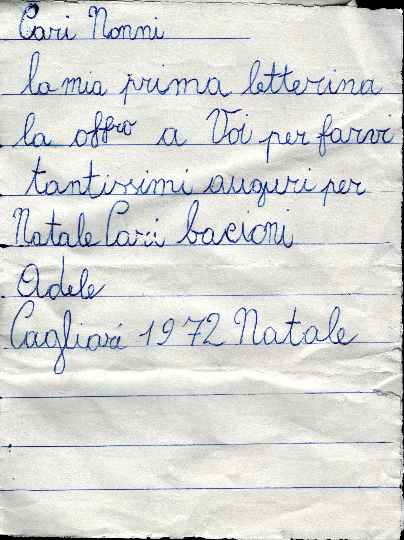 Cari Nonni
la mia prima letterina
la offro a Voi per farvi
tantissimi auguri per
Natale Cari bacioni
Adele
Cagliari 1972 Natale